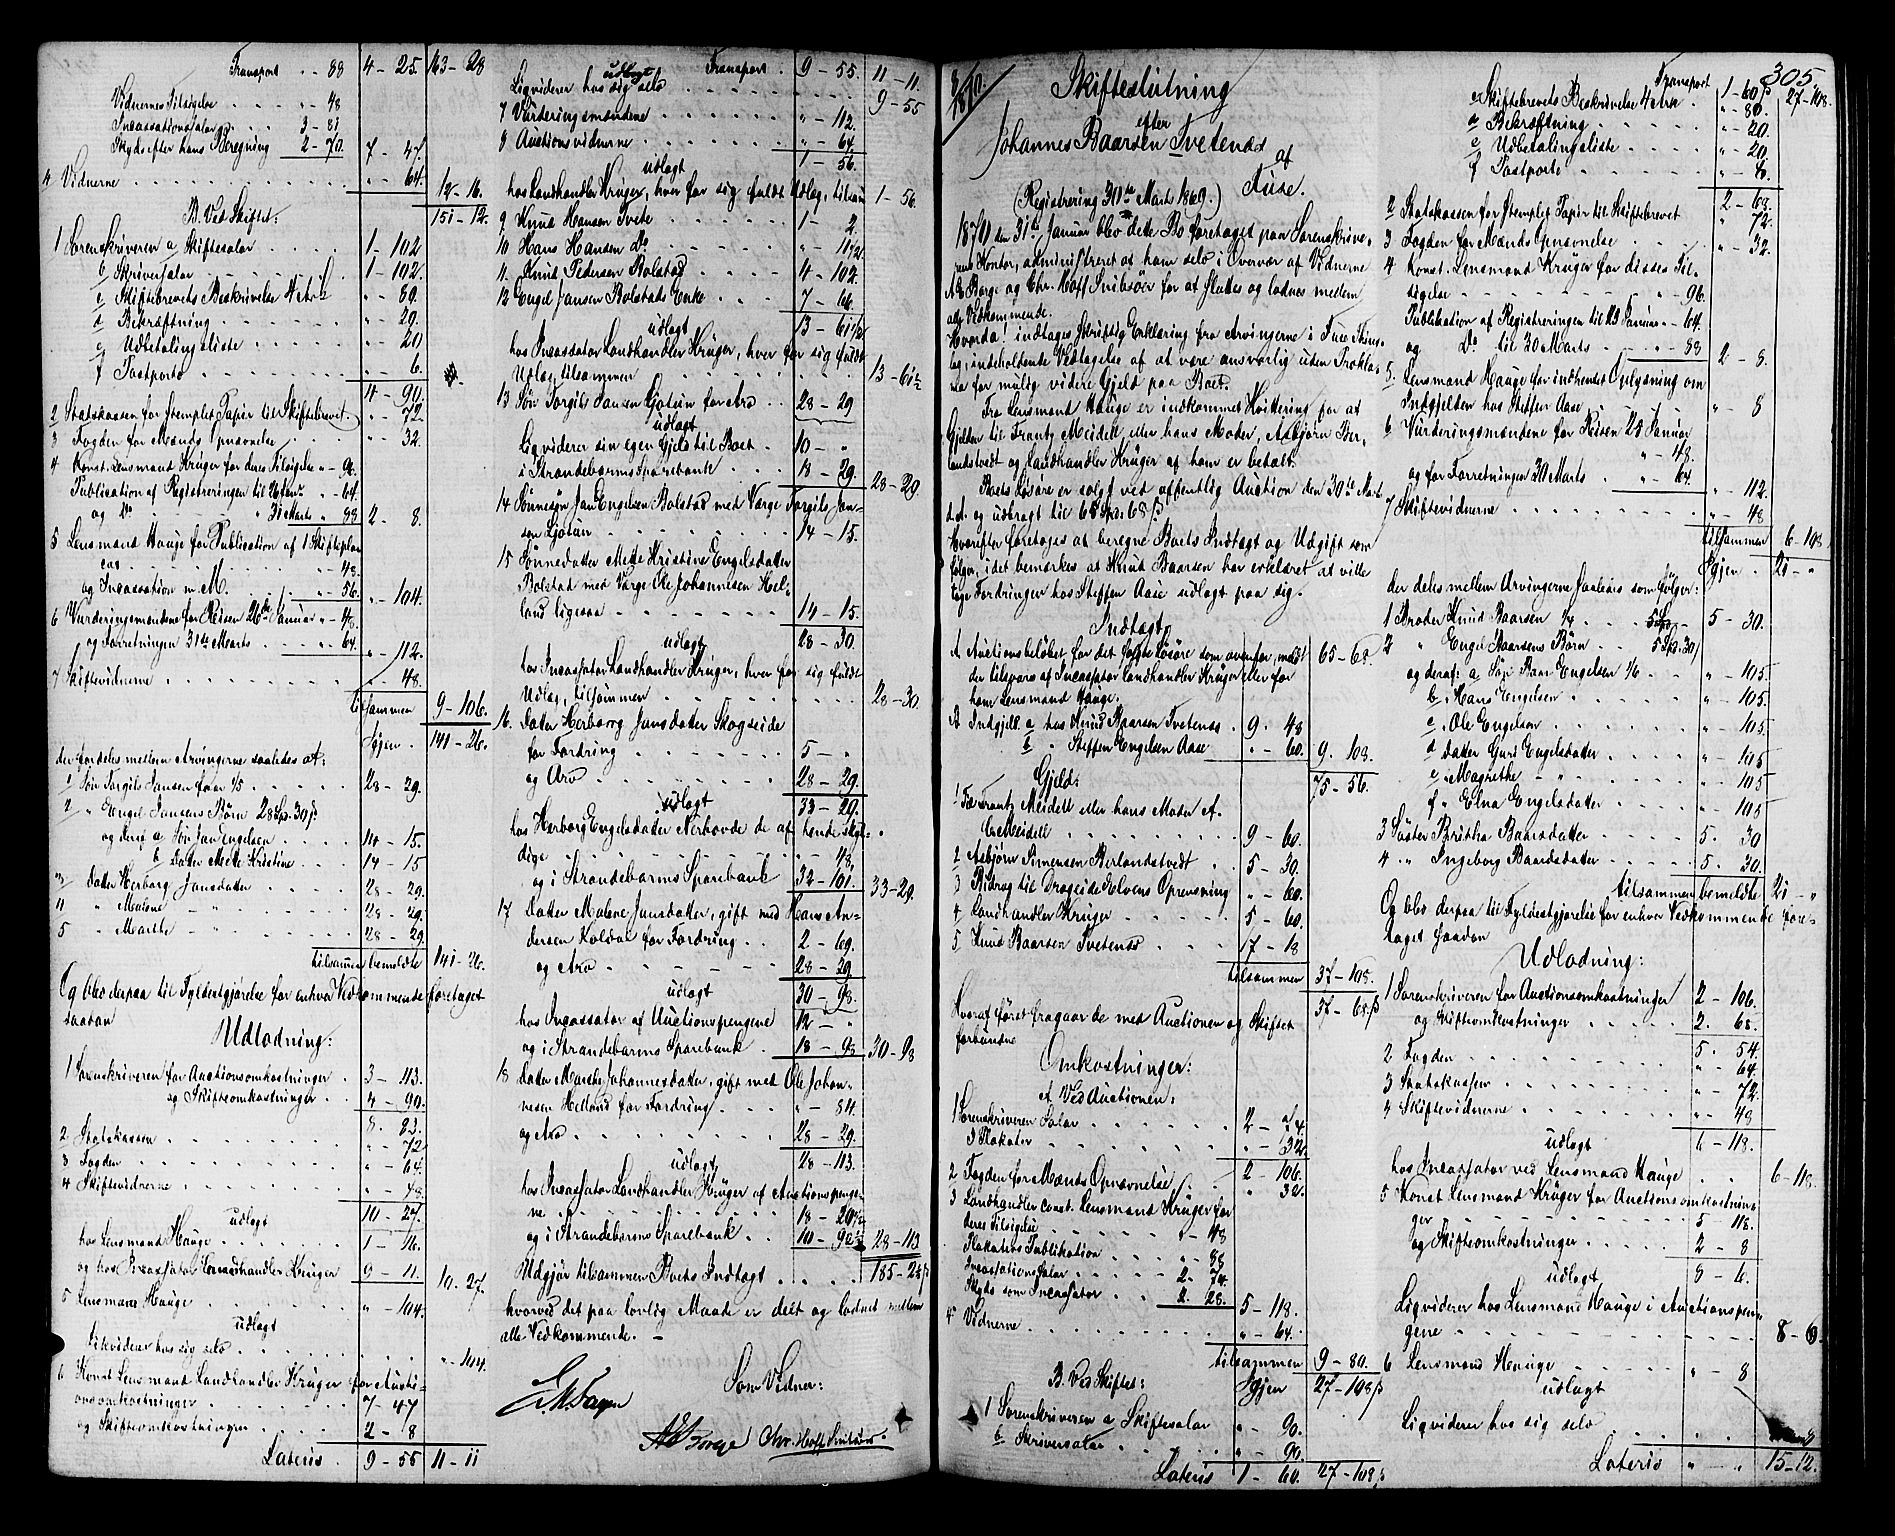 Transport " - 88 4 - 25. 163 - 28
Vidnernes Tilsigelse " - 48
Incassationssalær 3 - 81
Skyds efter hans Beregning 2 - 70. 7 - 47.
4 Vidnerne " - 64. 12 - 16.
B. Ved Skiftet: 151 - 12.
1 Sorenskriveren a Skiftesalær 1 - 102
b Skriversalær 1 - 102.
c Skiftebrevets Beskrivelse 4 Ark " - 80.
d Bekræftning " - 20.
e Udbetalingsliste " - 20
f Postporto " - 6.
4 - 90.
2 Statskassen for stemplet Papir til Skiftebrevet " - 72
3 Fogden for Mænds Opnævnelse " - 32.
4 Konst. Lensmand Krüger for deres Tilsigelse " - 96.
Publication af Registreringen til 26 Janr. " - 64.
og Do 31 Marts " 88 2 - 8.
5 Lensmand Hauge for Publication af 1 Skifteplan
cat " - 48.
og Incassation m. M. " - 56. " - 104.
6 Vurderingsmændene for Reisen 26de Januar " - 48.
og Forretningen 31te Marts " - 64. " - 112.
7 Skiftevidnerne " - 48.
tilsammen 9 - 106.
Igjen 141 - 26.
der fordeles mellem Arvingerne saaledes at:
1 Søn Torgils Jansen faar 1/5 28 - 29.
2 " Engel Jansens Børn 28 Sp. 30 ß
og deraf a Søn Jan Engelsen 14 - 15.
b Datter Mette Kristine 14 - 15
3 Datter Herborg Jansdatter 28 - 29.
4 " Malene - " - 28 - 29.
5 " Marthe - " - 28 - 29
tilsammen bemeldte 141 - 26.
Og blev derpaa til Fyldestgjørelse for enhver Vedkommende foretaget
saadan
Udlodning:
1 Sorenskriveren for Auctionsomkostninger 3 - 113.
og Skifteomkostninger 4 - 90.
8. 83.
2 Statskassen " - 72
3 Fogden " - 64.
4 Skiftevidnerne " - 48.
10 - 27.
udlagt
hos Lensmand Hauge 1 - 16.
og hos Incassator Landhandler Krüger 9 - 11. 10 - 27.
5 Lensmand Hauge " - 104.
udlagt
Likviderer hos sig selv " - 104.
6 Konst Lensmand Landhandler Krüger for Aucti-
onsomkostninger 7 - 47
og Skifteomkostninger 2 - 8
Lateris 9 - 55 11 - 11
Transport 9 - 55. 11 - 11.
udlagt
Liqviderer hos sig selv 9 - 55
7 Vurderingsmændene " - 112.
8 Auctionsvidnerne " - 64.
1 - 56.
udlagt
hos Landhandler Krüger, hver for sig fuldt Udlæg, tilsam 1 - 56.
9 Knud Hansen Tvete 1 - 2.
10 Hans Hansen Do " - 11 1/2
11. Knud Pedersen Bolstad 4 - 102.
12 Engel Jansen Bolstads Enke 7 - 66.
13 - 61 1/2
udlagt
hos Incassator Landhandler Krüger, hver for sig fuldt
Udlæg, tilsammen 13 - 61 1/2
13 Søn Torgils Jansen Gjøtun for Arv 28 - 29
udlagt
Liqviderer sin egen Gjeld til Boet 10 - "
i Strandebarms Sparebank 18 - 29. 28 - 29
14 Sønnesøn Jan Engelsen Bolstad med Værge Torgils Jan-
sen Gjøtun 14 - 15.
15 Sønnedatter Mette Kristine Engelsdatter
Bolstad med Værge Ole Johannesen Hel-
land ligesaa 14 - 15.
28 - 30.
udlagt
hos Incassator Landhandler Krüger, hver for sig fuldt
Udlæg, tilsammen 28 - 30.
16. Datter Herborg Jansdatter Skogseide
for Fordring 5 - "
og Arv 28 - 29.
33 - 29.
udlagt
hos Herborg Engelsdatter Nerhovde de af hende skyl-
dige " - 48,
og i Strandebarms Sparebank 32 - 101. 33 - 29.
17 Datter Malene Jansdatter, gift med Hans An-
dersen Koldal for Fordring 2 - 69.
og Arv 28 - 29.
30 - 98.
udlagt
hos Incassator af Auctionspengene 12 - "
og i Strandebarms Sparebank 18 - 98 30 - 98
18 Datter Marthe Johannesdatter, gift med Ole Johan-
nesen Helland for Fordring " - 84.
og Arv 28 - 29.
28 - 113.
udlagt
hos Incassator Landhandler Krüger af Auctionspenge-
ne 18 - 20 1/2
og i Strandebarms Sparebank 10 - 92 1/2 28 - 113
Udgjør tilsammen Boets Indtægt 185 - 28 ß
hvorved det paa lovlig Maade er delt og lodnet mellem
alle Vedkommende. -
Som Vidner:
A E Borge Chr. Hoff Snilsøer.
305.
8/1870 Skifteslutning
efter
Johannes Baarsen Tvetenæs
af
Fuse.
(Registrering 30te Marts 1869.)
1870 den 31te Januar blev dette Bo foretaget paa Sorenskrive-
rens Kontor, administreret af ham selv i Overvær af Vidnerne
A E Borge og Chr. Hoff Snilsøer for at sluttes og lodnes mellem
alle Vedkommende.
Hvorda! indtages skriftlig Erklæring fra Arvingerne i Fuse Thing-
lag, indeholdende Vedtagelse af at være ansvarlig uden Prokla-
ma for mulig videre Gjeld paa Boet.
Fra Lensmand Hauge er indkommet Kvittering for at
Gjelden til Frantz Meidell eller hans Moder, Asbjørn Ber-
landstvedt og Landhandler Krüger af ham er betalt.
Boets Løsøre er solgt ved offentlig Auction den 30te Marts
d. A. og udbragt til 65 Spd 68 ß
Hvorefter foretages at beregne Boets Indtægt og Udgift som
følger, idet bemærkes at Knud Baarsen har erklæret at ville
tage Fordringen hos Steffen Aase udlagt paa sig.
Indtægt
A Auctionsbeløbet for det solgte Løsøre som ovenfor meldt 65 - 68.
der tilsvares af Incassator Landhandler Krüger eller for
ham Lensmand Hauge.
B Indgjeld. a hos Knud Baarsen Tvetenæs 9. 48
b " Steffen Engelsen Aase " - 60. 9. 108.
75 - 56.
Gjeld:
1 Til Frantz Meidell eller hans Moder A.
C Meidell 9 - 60.
2 Asbjørn Simensen Berlandstvedt 5 - 30.
3 Bidrag til Drageide Elvens Oprensning " - 60.
4 Landhandler Krüger 5 - 60.
5 Knud Baarsen Tvetenæs 17 - 18
tilsammen 37 - 108.
37 - 68 ß
Hvoraf først fragaar de med Auctionen og Skiftet
forbundne
Omkostninger:
A. Ved Auctionen:
1 Sorenskriveren Salær 2 - 74
3 Plakater " - 32.
2 - 106.
2 Fogden for Mænds Opnævnelse " 32.
3 Landhandler const. Lensmand Krüger for
deres Tilsigelse " - 48
Plakatens Publikation " - 88
Incassationssalær 2. 74.
Skyds som Incassator 2. 28. 5 - 118.
4 Vidnerne " - 64.
tilsammen 9 - 80.
B. Ved Skiftet: Igjen 27 - 108 ß
1 Sorenskriveren a Skiftesalær " - 90.
b Skriversalær " - 90.
Lateris 1 - 60. 27 - 108 ß
Transport 1 - 60 ß 27 - 108.
c Skiftebrevets Beskrivelse 4 Ark " - 80.
d Bekræftning " - 20.
e Udbetalingsliste " - 20
f Postporto " - 8.
2 - 68.
2 Statskassen for stemplet Papir til Skiftebrevet " 72.
3 Fogden for Mænds Opnævnelse " - 32.
4 Konst. Lensmand Krüger for disses Til-
sigelse " - 96.
Publikation af Registreringen til 25 Januar " - 64.
og Do til 30 Marts " - 88 2 - 8.
5. Lensmand Hauge for indhentet Oplysning om
Indgjelden hos Steffen Aase " - 8
6 Vurderingsmændene for Reisen 25 Januar
" - 48.
og for Forretningen 30 Marts " - 64. " - 112.
7 Skiftevidnerne " - 48
tilsammen 6 - 108
Igjen 21 - "
der deles mellem Arvingerne saaledes som følger:
1 Broder Knud Baarsen 1/4 5 - 30.
2 " Engel Baarsens Børn 5 Sp. 30 ß
og deraf: a Søn Baar Engelsen 1/6 " - 105.
b. Hans Engelsen " - 105.
c. Ole Engelsen " - 105
d Datter Guri Engelsdatter " - 105
e " Magrethe - " - " - 105
f " Elna Engelsdatter " - 105
3 Søster Britha Baarsdatter 5. 30
4 " Ingeborg Baardsdatter 5. 30.
tilsammen bemeldte 21 - "
Og blev derpaa til Fyldestgjørelse for enhver Vedkommende fore-
taget saadan
Udlodning:
1 Sorenskriveren for Auctionsomkostninger 2 - 106.
og Skifteomkostninger 2. 68.
5. 54.
2 Fogden " - 64.
3 Statskassen " - 72.
4 Skiftevidnerne " - 48
6 - 118.
udlagt
hos Incassator ved Lensmand Hauge 6 - 118.
5 Konst Lensmand Krüger for Auctionsomkostnin-
ger 5 - 118.
og Skifteomkostninger 2 - 8
8 - 6.
udlagt
Liqviderer hos Lensmand Hauge i Auctionspen-
gene 8 - 6.
6 Lensmand Hauge " - 8
udlagt
Liqviderer hos sig selv 8
Lateris " - " 15 - 12.